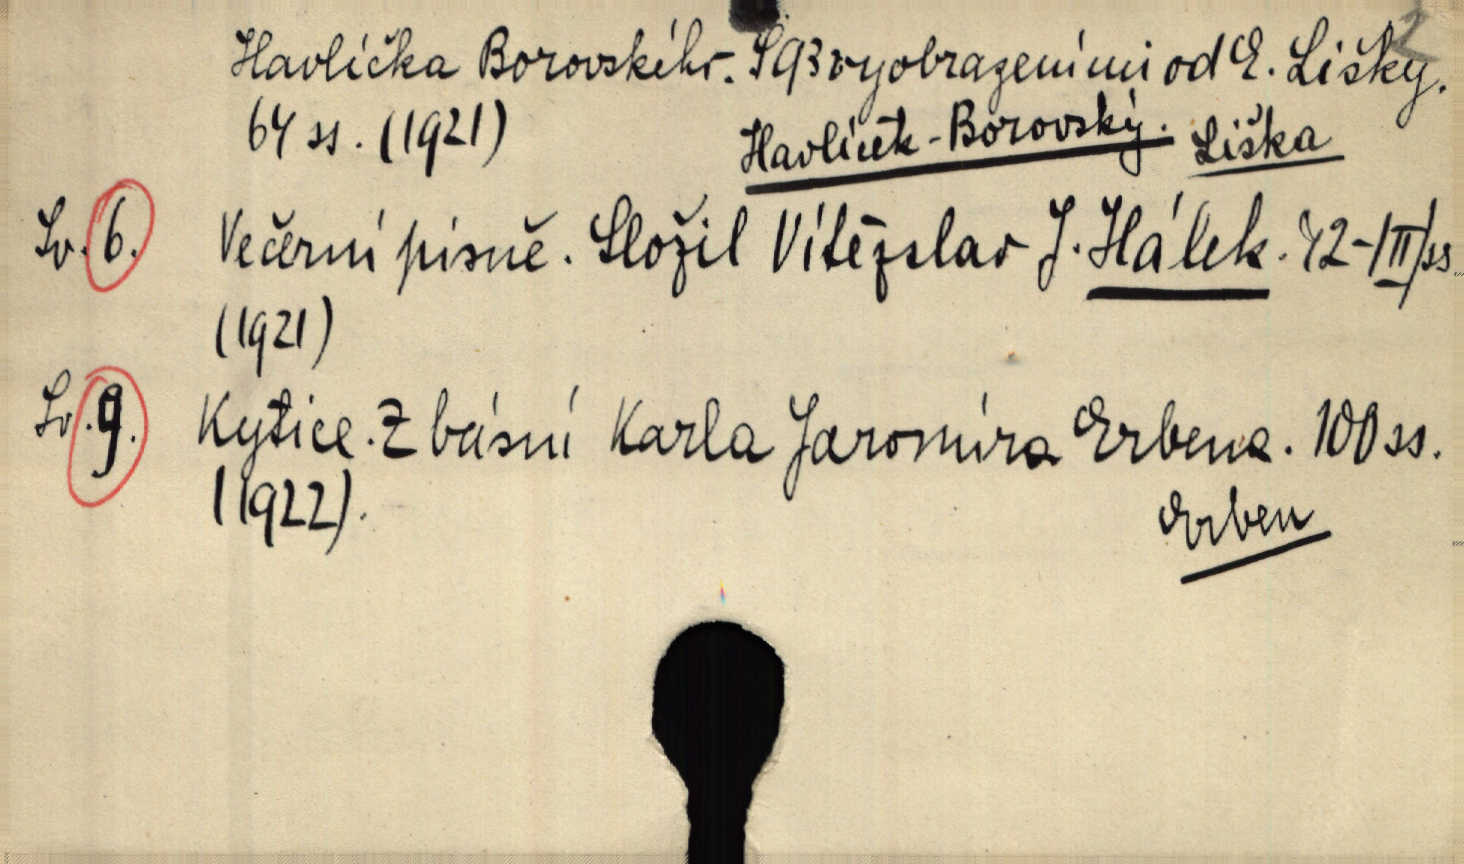 2
Havlíčka Borovského. S 93 vyobrazeními od E. Lišky.
64 ss. (1921) Havlíček-Borovský. Liška
Sv. 6. Večerní písně. Složil Vítězslav J. Hálek. 72-/III/ss
(1921)
Sv. 9. Kytice. Z básní Karla Jaromíra Erbena. 100 ss.
(1922). Erben